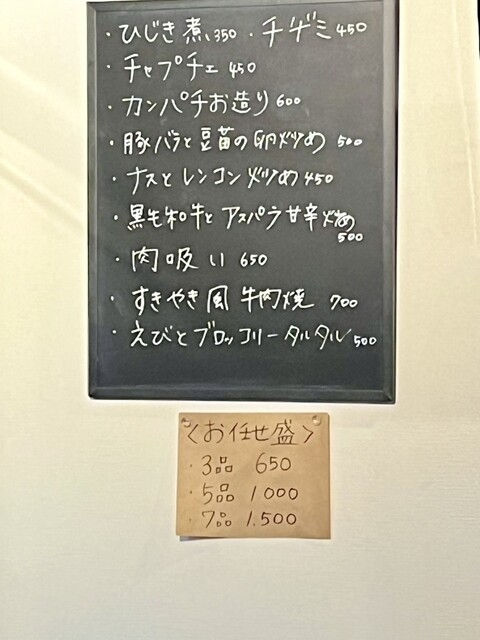 ・ひじき煮 350 ・チヂミ 450
・チャプチェ 450
・カンパチお造り 600
・豚バラと豆苗の卵炒め 500
・ナスとレンコン炒め 450
・黒毛和牛とアスパラ甘辛炒め
500
・肉吸い 650
・すきやき風牛肉焼 700
・えびとブロッコリータルタル 500
〈お任せ盛〉
・3品 650
・5品 1000
・7品 1,500